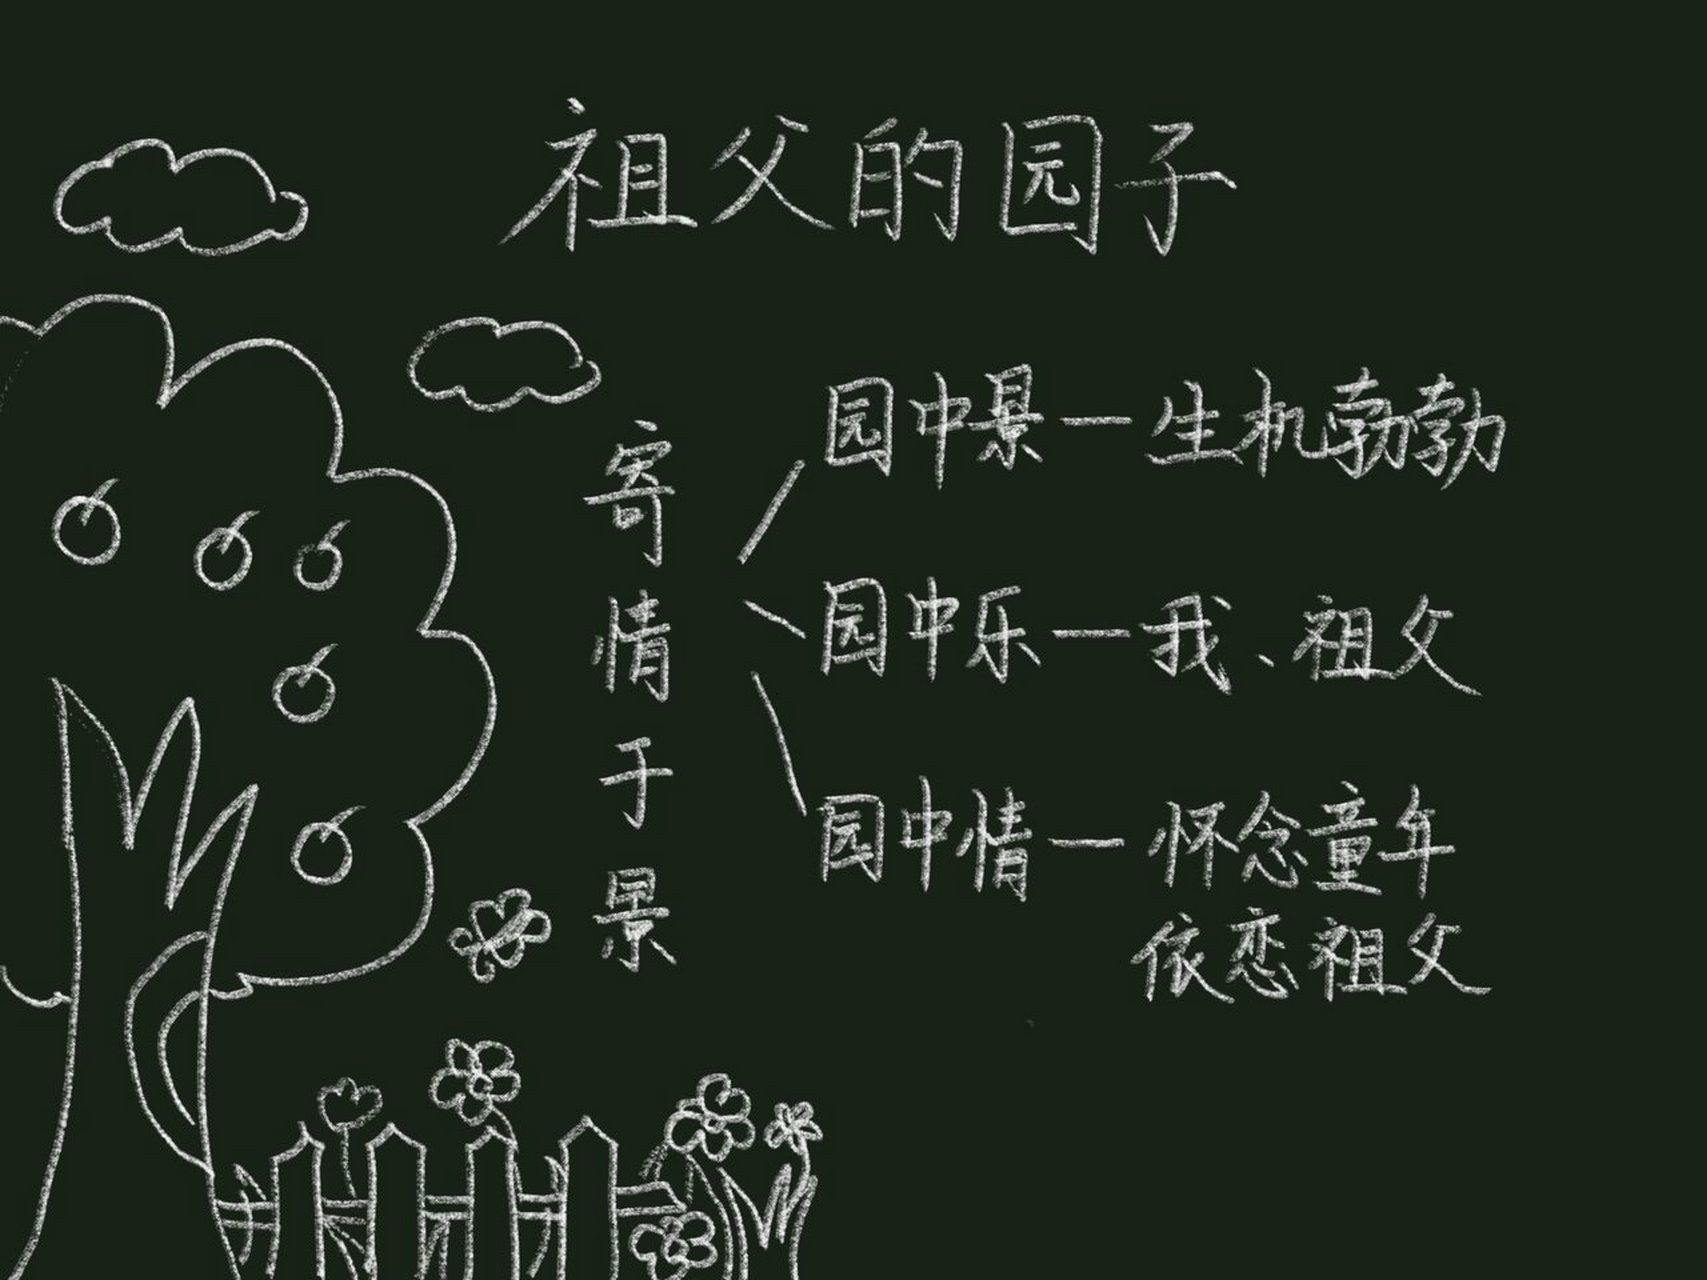 祖父的园子
寄情于景
园中景—生机勃勃
园中乐—我、祖父
园中情—怀念童年
依恋祖父